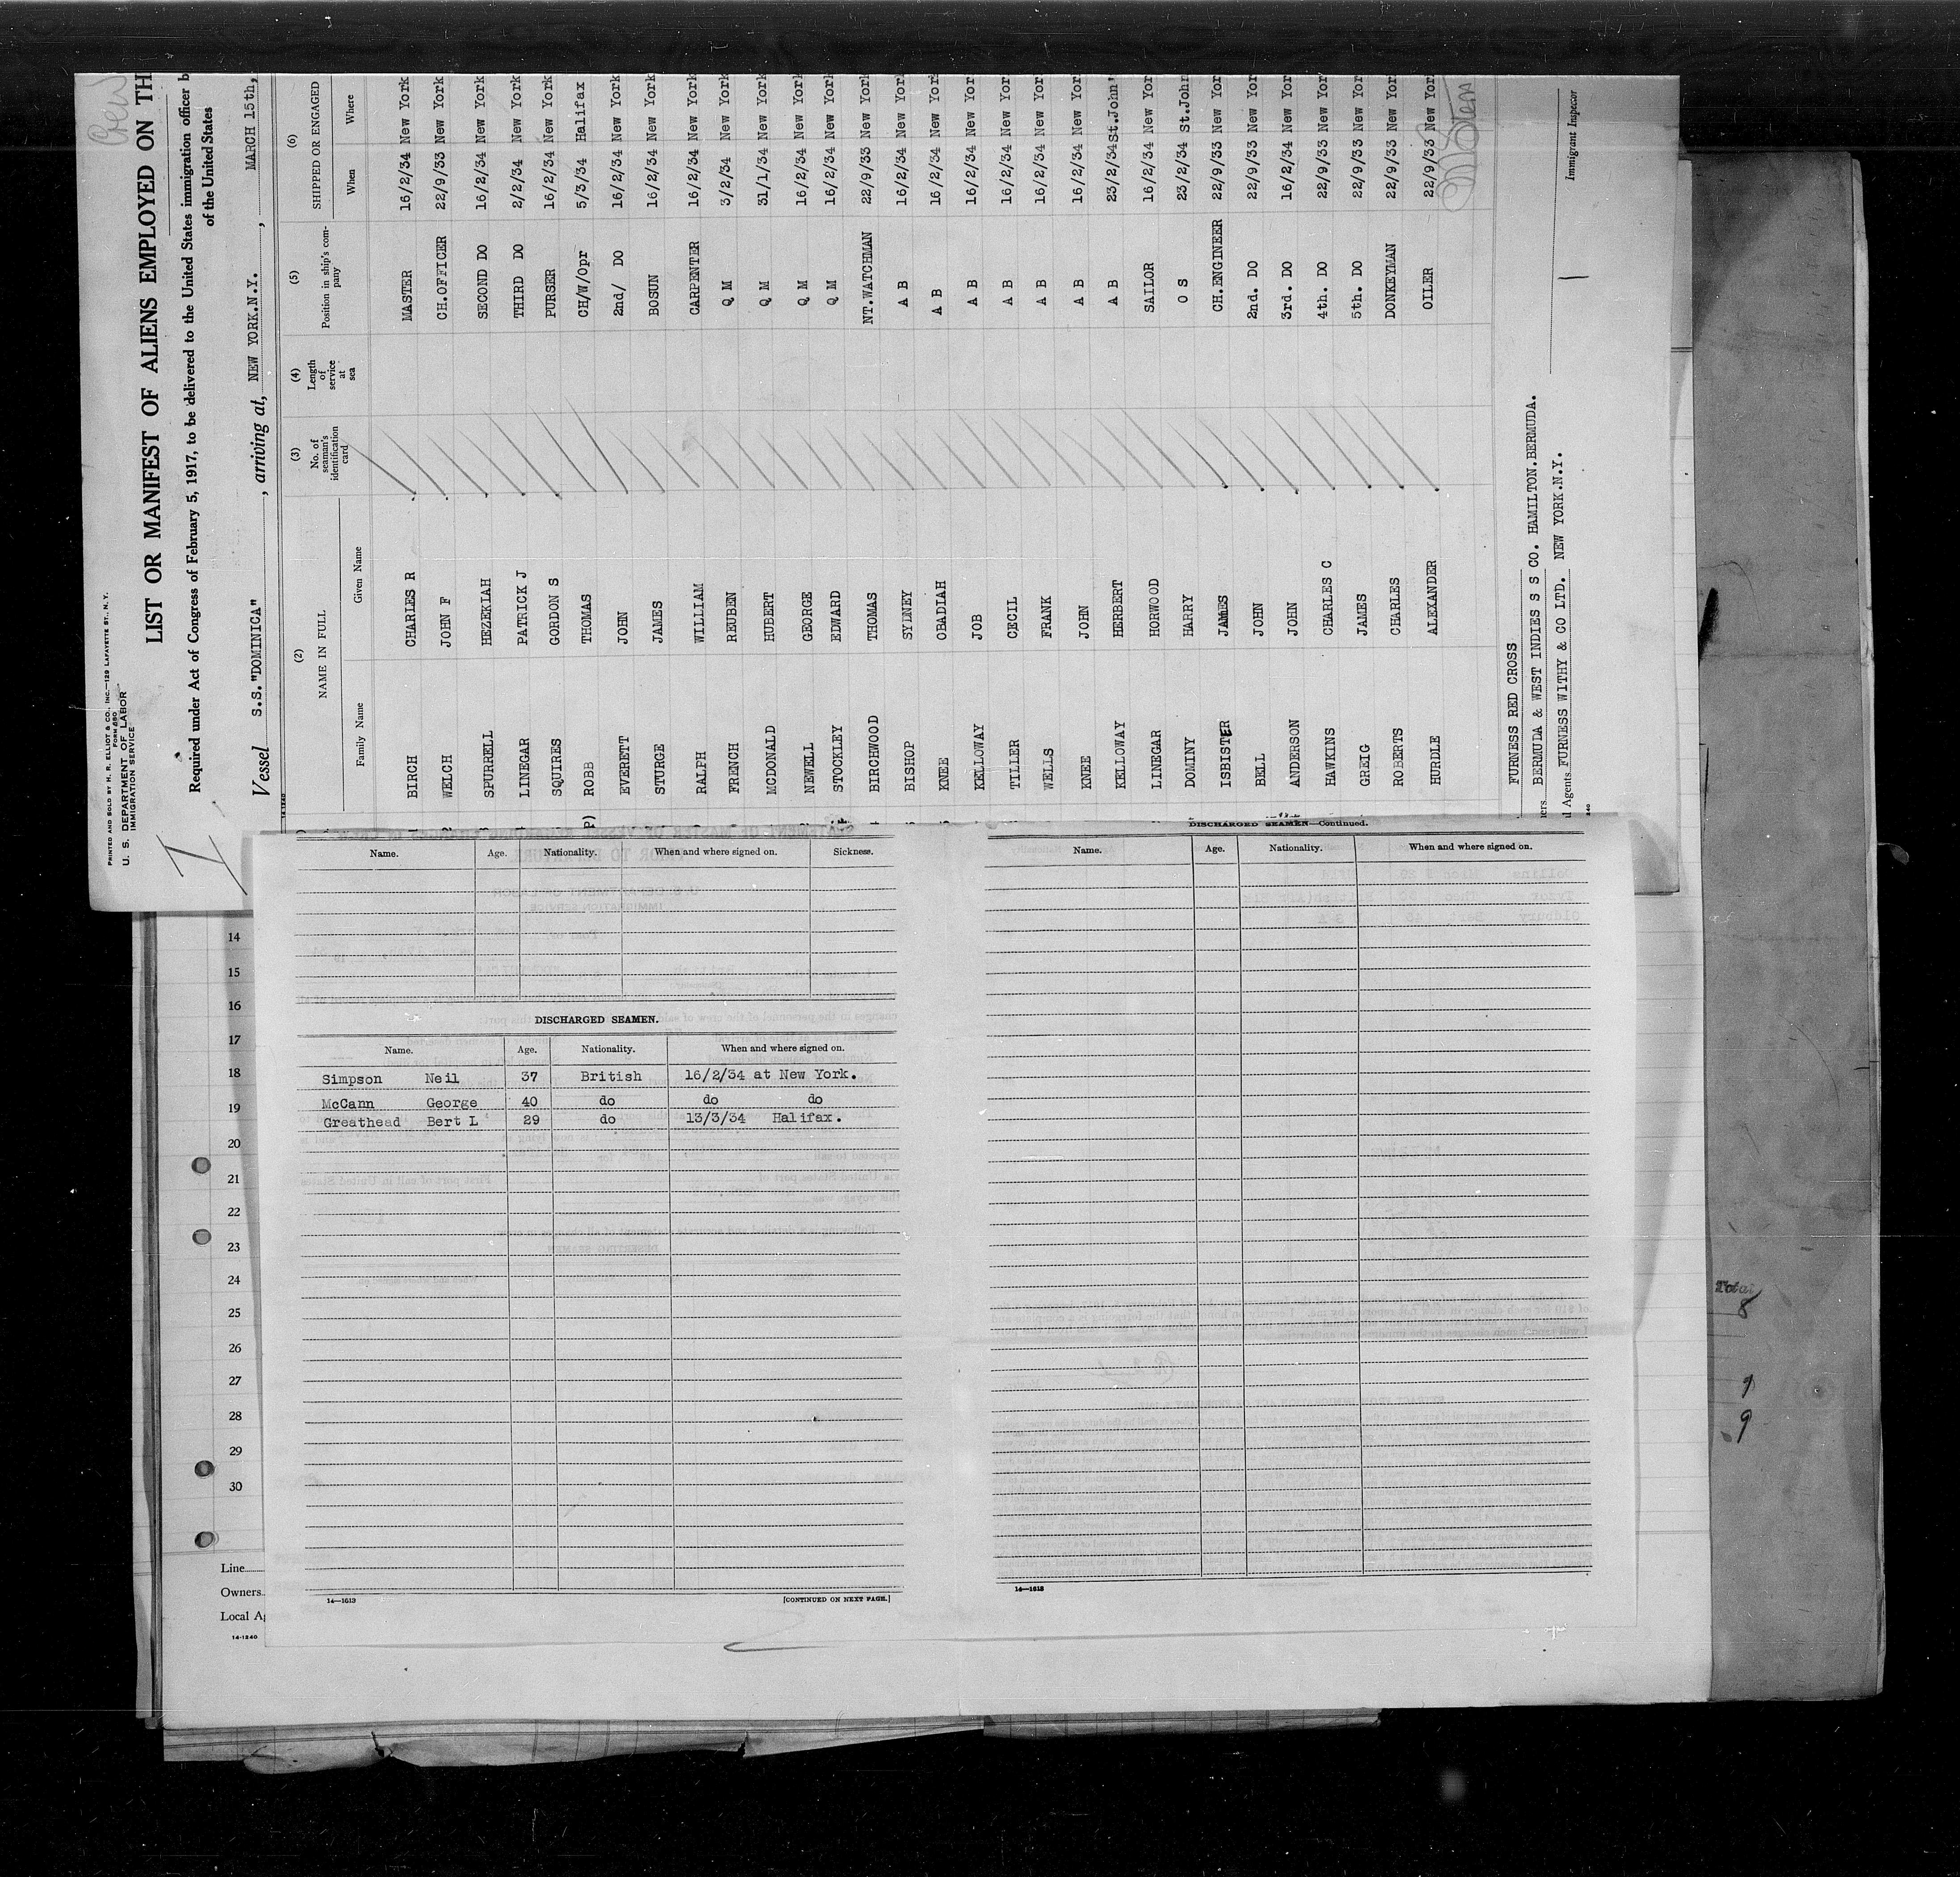 Crew
PRINTED AND SOLD BY H. R. ELLIOT & CO., INC.—129 LAFAYETTE ST., N. Y.
FORM 680
U. S. DEPARTMENT OF LABOR
IMMIGRATION SERVICE
LIST OR MANIFEST OF ALIENS EMPLOYED ON TH
Required under Act of Congress of February 5, 1917, to be delivered to the United States immigration officer b
of the United States
Vessel S.S."DOMINICA" , arriving at, NEW YORK.N.Y. , MARCH 15th,
(2) (3) (4) (5) (6)
NAME IN FULL No. of seaman's identification card Length of service at sea Position in ship's company SHIPPED OR ENGAGED
Family Name Given Name When Where
BIRCH CHARLES R MASTER 16/2/34 New York
WELCH JOHN F CH.OFFICER 22/9/33 New York
SPURRELL HEZEKIAH SECOND DO 16/2/34 New York
LINEGAR PATRICK J THIRD DO 2/2/34 New York
SQUIRES GORDON S PURSER 16/2/34 New York
ROBB THOMAS CH/W/Opr 5/3/34 Halifax
EVERETT JOHN 2nd/ DO 16/2/34 New York
STURGE JAMES BOSUN 16/2/34 New York
RALPH WILLIAM CARPENTER 16/2/34 New York
FRENCH REUBEN Q M 3/2/34 New York
MCDONALD HUBERT Q M 31/1/34 New York
NEWELL GEORGE Q M 16/2/34 New York
STOCKLEY EDWARD Q M 16/2/34 New York
BIRCHWOOD THOMAS NT.WATCHMAN 22/9/33 New York
BISHOP SYDNEY A B 16/2/34 New York
KNEE OBADIAH A B 16/2/34 New York
KELLOWAY JOB A B 16/2/34 New Yor
TILLER CECIL A B 16/2/34 New Yor
WELLS FRANK A B 16/2/34 New Yor
KNEE JOHN A B 16/2/34 New Yor
KELLOWAY HERBERT A B 23/2/34 St.John'
LINEGAR HORWOOD SAILOR 16/2/34 New Yor
DOMINY HARRY O S 23/2/34 St.John
ISBISTER JAMES CH.ENGINEER 22/9/33 New Yor
BELL JOHN 2nd. DO 22/9/33 New Yor
ANDERSON JOHN 3rd. DO 16/2/34 New Yor
HAWKINS CHARLES C 4th. DO 22/9/33 New Yor
GREIG JAMES 5th. DO 22/9/33 New Yor
ROBERTS CHARLES DONKEYMAN 22/9/33 New Yor
HURDLE ALEXANDER OILER 22/9/33 New Yor
FURNESS RED CROSS
ners BERMUDA & WEST INDIES S S CO. HAMILTON.BERMUDA.
l Agents FURNESS WITHY & CO LTD. NEW YORK.N.Y.
Immigrant Inspector
Name. Age. Nationality. When and where signed on. Sickness.
DISCHARGED SEAMEN.
Name. Age. Nationality. When and where signed on.
Simpson Neil 37 British 16/2/34 at New York.
McCann George 40 do do do
Greathead Bert L 29 do 13/3/34 Halifax.
14—1613 [CONTINUED ON NEXT PAGE.]
DISCHARGED SEAMEN—Continued.
Name. Age. Nationality. When and where signed on.
14—1613
14
15
16
17
18
19
20
21
22
23
24
25
26
27
28
29
30
Line
Owners
Local A
14-1240
Total
8
9
9